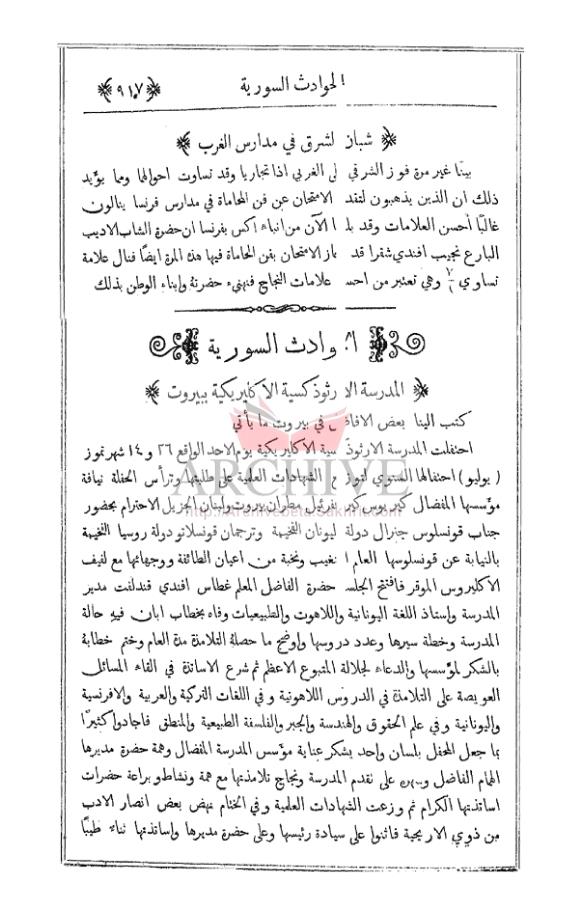 الحوادث السورية ﴿٩١٧﴾
﴿ شبان الشرق في مدارس الغرب ﴾
بينا غير مرة فوز الشرقي لى الغربي اذا تجاريا وقد تساوت احوالها ومما يؤيد
ذلك ان الذين يذهبون لتقد الامتحان عن فن المحاماة في مدارس فرنسا ينالون
غالبًا أحسن العلامات وقد بلـ ا الآن من انباء اكس بفرنسا ان حضرة الشاب الاديب
البارع نجيب افندي شقرا قد از الامتحان بفن المحاماة فيها هذه المرة ايضًا فنال علامة
تساوي وهي تعتبر من احسـ علامات النجاح فنهنيء حضرته وابناء الوطن بذلك
الحوادث السورية
﴿ المدرسة الارثوذكسية الاكليريكية ببيروت ﴾
كتب الينا بعض الافاضل في بيروت ما يأتي
احتفلت المدرسة الارثوذ سية الاكليريكية يوم الاحد الواقع ٢٦ و ١٤ شهر تموز
( يوليو ) احتفالها السنوي لتوز الشهادات العلمية على طلبتها وترأس الحفلة نيافة
مؤسسها المفضال كير يوس كير غفرئيل مطران بيروت ولبنان الجزيل الاحترام بحضور
جناب قونسلوس جنرال دولة ليونان الفخيمة وترجمان قونسلاتو دولة روسيا الفخيمة
بالنيابة عن قونسلوسها العام ا لغيب ونخبة من اعيان الطائفة ووجهائها مع لفيف
الاكليروس الموقر فافتتح الجلسـ حضرة الفاضل المعلم غطاس افندي قندلفت مدير
المدرسة واستاذ اللغة اليونانية واللاهوت والطبيعيات وفاه بخطاب ابان فيه حالة
المدرسة وخطة سيرها وعدد دروسها واوضح ما حصلهُ التلامذة مدة العام وختم خطابهُ
بالشكر لمؤسسها والدعاء لجلالة المتبوع الاعظم ثم شرع الاساتذة في القاء المسائل
العويصة على التلامذة في الدروس اللاهوتية وفي اللغات التركية والعربية والافرنسية
واليونانية وفي علم الحقوق والهندسة والجبر والفلسفة الطبيعية والمنطق فاجادوا كثيرًا
بما جعل المحفل بلسان واحد يشكر عناية مؤسس المدرسة المفضال وهمة حضرة مديرها
الهمام الفاضل وسهره على تقدم المدرسة ونجاح تلامذتها مع همة ونشاط وبراعة حضرات
اساتذتها الكرام ثم وزعت الشهادات العلمية وفي الختام نهض بعض انصار الادب
من ذوي الاريحية فاثنوا على سيادة رئيسها وعلى حضرة مديرها واساتذتها ثناء طيبًا
ARCHIVE